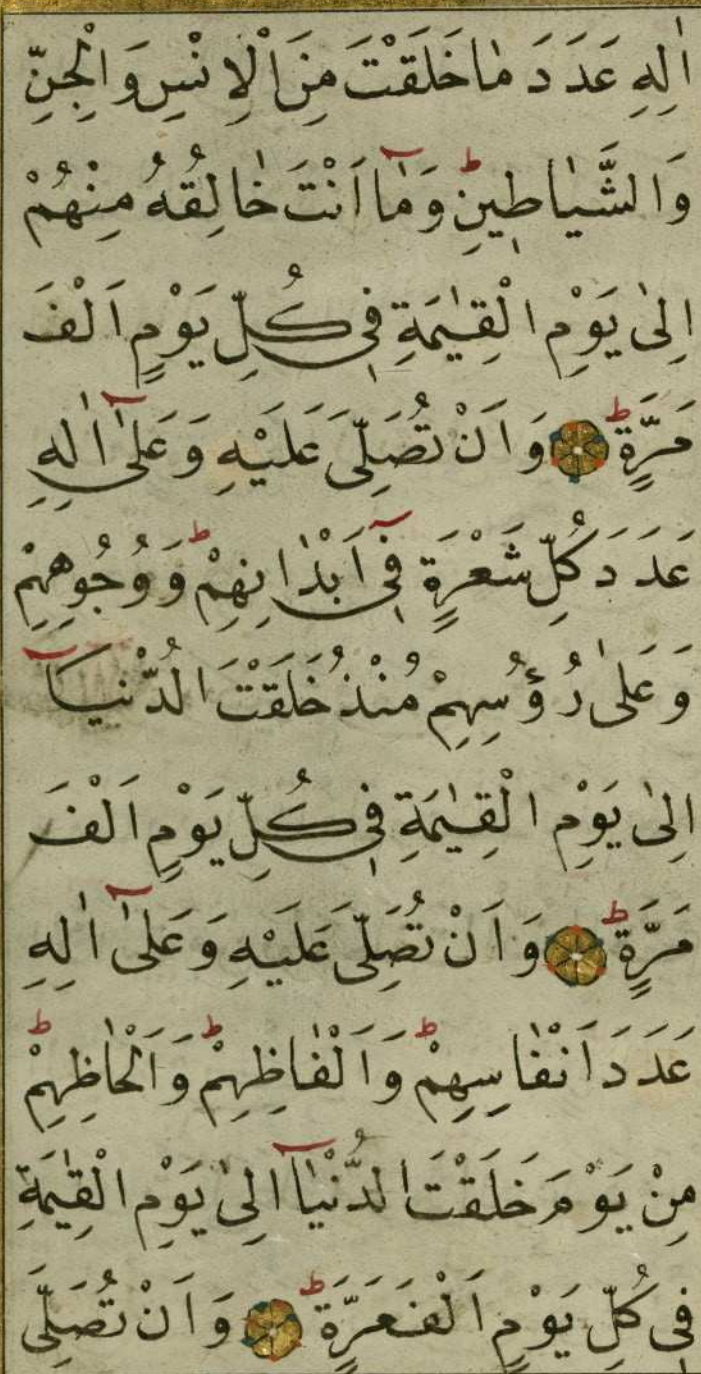 اٰلِهِ عَدَدَ مٰا خَلَقْتَ مِنَ اْلاِنْسِ وَالْجِنِّ
وَالشَّيٰاطٖينِ ط وَمٰٓا اَنْتَ خٰالِقُهُ مِنْهُمْ
اِلىٰ يَوْمِ الْقِيٰمَةِ فٖى كُلِّ يَوْمٍ اَلْفَ
مَرَّةٍ ط وَاَنْ تُصَلِّىَ عَلَيْهِ وَعَلىٰٓ اٰلِهِ
عَدَدَ كُلِّ شَعْرَةٍ فٖٓى اَبْدٰانِهِمْ ط وَوُجُوهِهِمْ
وَعَلىٰ رُؤُسِهِمْ مُنْذُ خَلَقْتَ الدُّنْيَآ
اِلىٰ يَوْمِ الْقِيٰمَةِ فٖى كُلِّ يَوْمٍ اَلْفَ
مَرَّةٍ ط وَاَنْ تُصَلِّىَ عَلَيْهِ وَعَلىٰٓ اٰلِهِ
عَدَدَ اَنْفٰاسِهِمْ ط وَاَلْفٰاظِهِمْ ط وَاَلْحٰاظِهِمْ ط
مِنْ يَوْمَ خَلَقْتَ الدُّنْيٰٓا اِلىٰ يَوْمِ الْقِيٰمَةِ
فٖى كُلِّ يَوْمٍ اَلْفَ مَرَّةٍ ط وَاَنْ تُصَلِّىَ